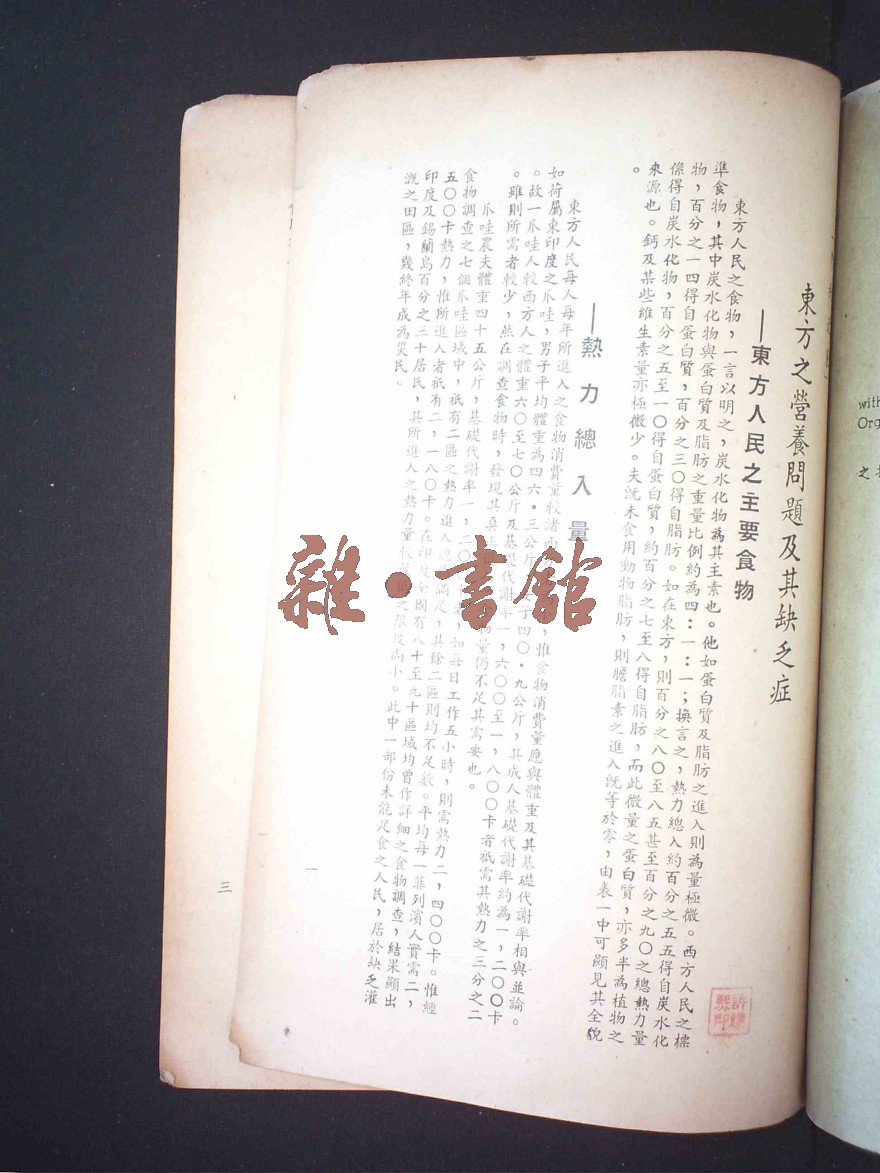 東方之營養問題及其缺乏症
——東方人民之主要食物
東方人民之食物,一言以明之,炭水化物為其主素也。他如蛋白質及脂肪之進入則為量極微。西方人民之標
準食物,其中炭水化物與蛋白質及脂肪之重量比例約為四:一:一;換言之,熱力總入約百分之五五得自炭水化
物,百分之一四得自蛋白質,百分之三〇得自脂肪。如在東方,則百分之八〇至八五甚至百分之九〇之總熱力量
係得自炭水化物,百分之五至一〇得自蛋白質,約百分之七至八得自脂肪,而此微量之蛋白質,亦多半為植物之
來源也。鈣及某些維生素量亦極微少。夫既未食用動物脂肪,則膽脂素之進入既等於零,由表一中可顯見其全貌
。
——熱力總入量
東方人民每人每年所進入之食物消費量較諸西
,惟食物消費量應與體重及其基礎代謝率相與並論。
如荷屬東印度之爪哇,男子平均體重為四六·三公斤
子四〇·九公斤,其成人基礎代謝率約為一,二〇〇卡
。故一爪哇人較西方人之體重六〇至七〇公斤及基礎代謝率一,六〇〇至一,八〇〇卡者祇需其熱力之三分之二
。雖則所需者較少,然在調查食物時,發現其真正
物量仍不足其需要也。
爪哇農夫體重四十五公斤,基礎代謝率一,二〇
者,如每日工作五小時,則需熱力二,四〇〇卡。惟經
食物調查之七個爪哇區域中,祇有二區之熱力進入
滿足,其餘二區則均不足數。平均每一菲列濱人實需二,
五〇〇卡熱力,惟所進入者祇有二,一八〇卡。在印度全國有八十至九十區域均曾作詳細之食物調查,結果顯出
印度及錫蘭島百分之三十居民,其所進入之熱力量較
之限度尚小。此中一部份未能足食之人民,居於缺乏灌
溉之田區,幾終年成為災民。
一
三
with
Org
之
雜·書館